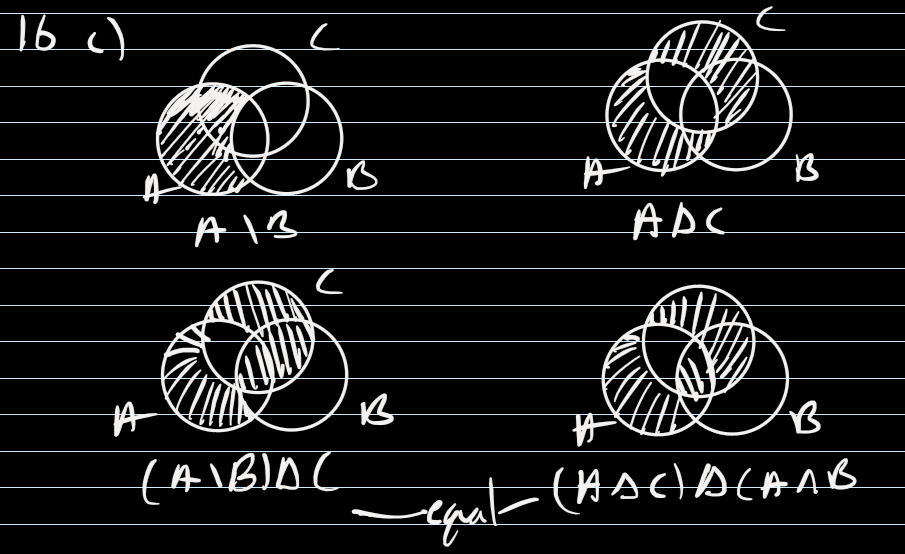 16 c)
C
A
B
A \ B
C
A
B
A Δ C
C
A
B
(A \ B) Δ C
A
B
(A Δ C) Δ (A ∩ B
equal